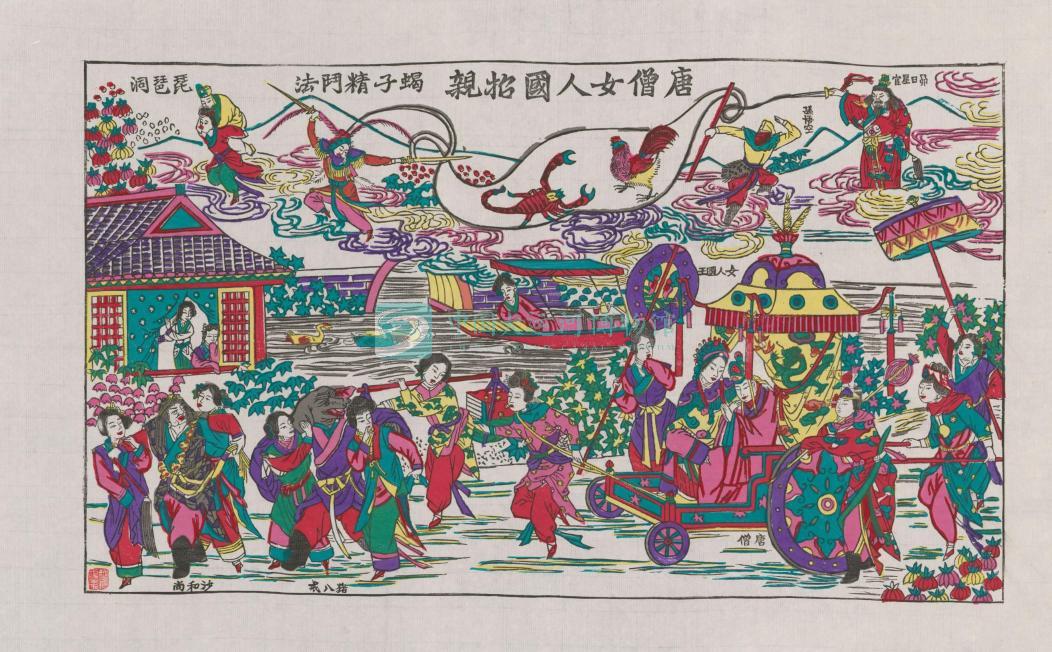 唐僧女人國招親
蝎子精鬥法
琵琶洞
昴日星官
孫悟空
女人國王
唐僧
猪八戒
沙和尚